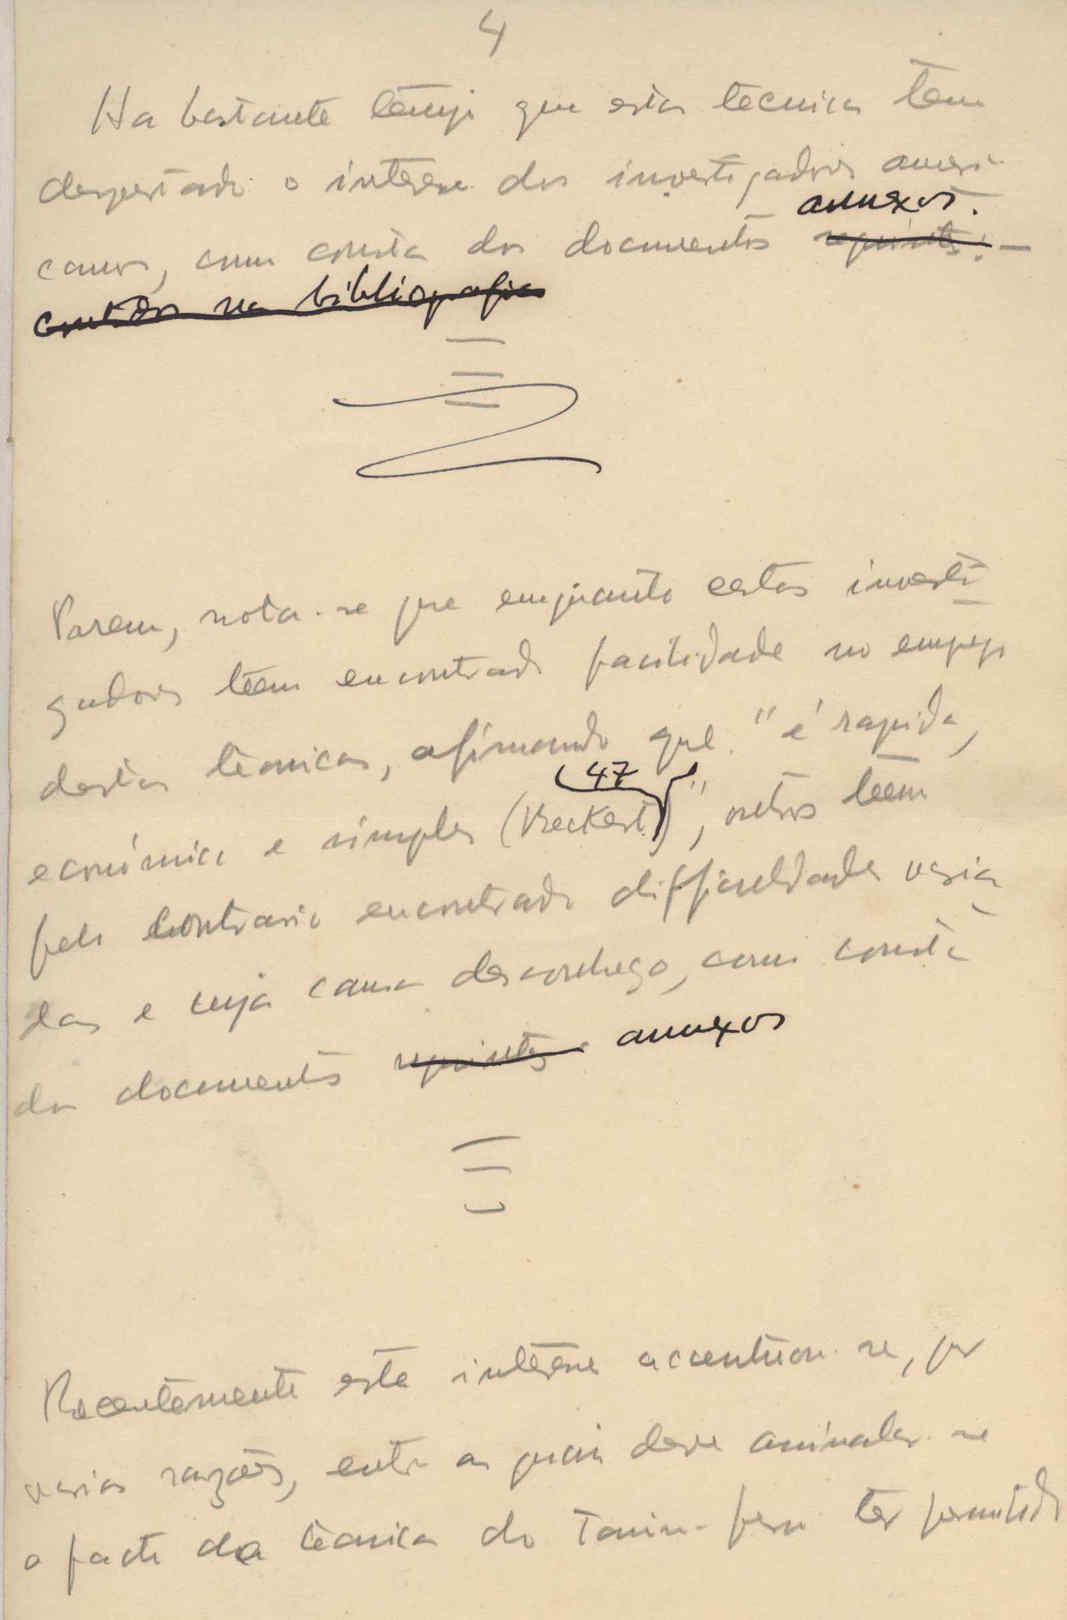 4
Ha bastante tempo que estas tecnicas tem
despertado o interesse dos investigadores ameri-
annexos.
canos, como consta dos documentos seguintes: —
contidos na bibliografia
Porem, nota-se que emquanto certos investi-
gadores têem encontrado facilidade no emprego
destas tecnicas, afirmando que "é rapida,
(47)
económica e simples (Weckert)", outros têem
pelo contrario encontrado difficuldades varia
das e cuja causa desconheço, como consta
dos documentos seguintes annexos
Recentemente este interesse accentuou-se, por
varias razões, entre as quais deve assinalar-se
o facto da tecnica do Tanino-ferro ter permitido